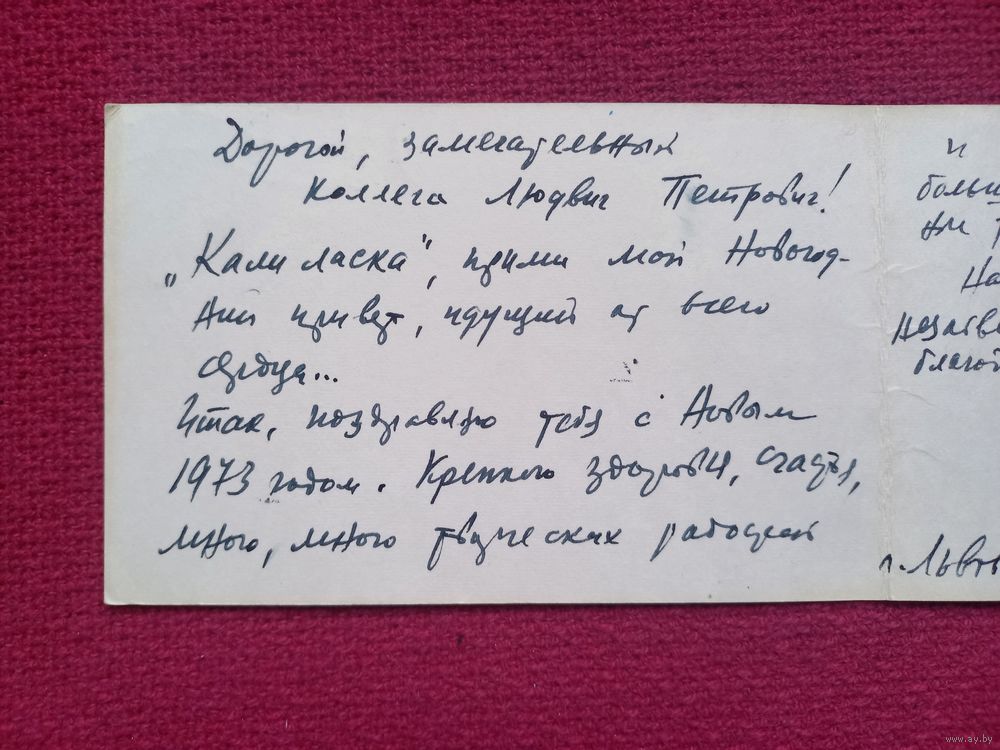 Дорогой, замечательный
коллега Людвиг Петрович!
„Кали ласка", прими мой Новогод-
ний привет, идущий от всего
сердца...
Итак, поздравляю тебя с Новым
1973 годом. Крепкого здоровья, счастья,
много, много творческих радостей
и
больш
На
благод
г. Льв
www.ay.by